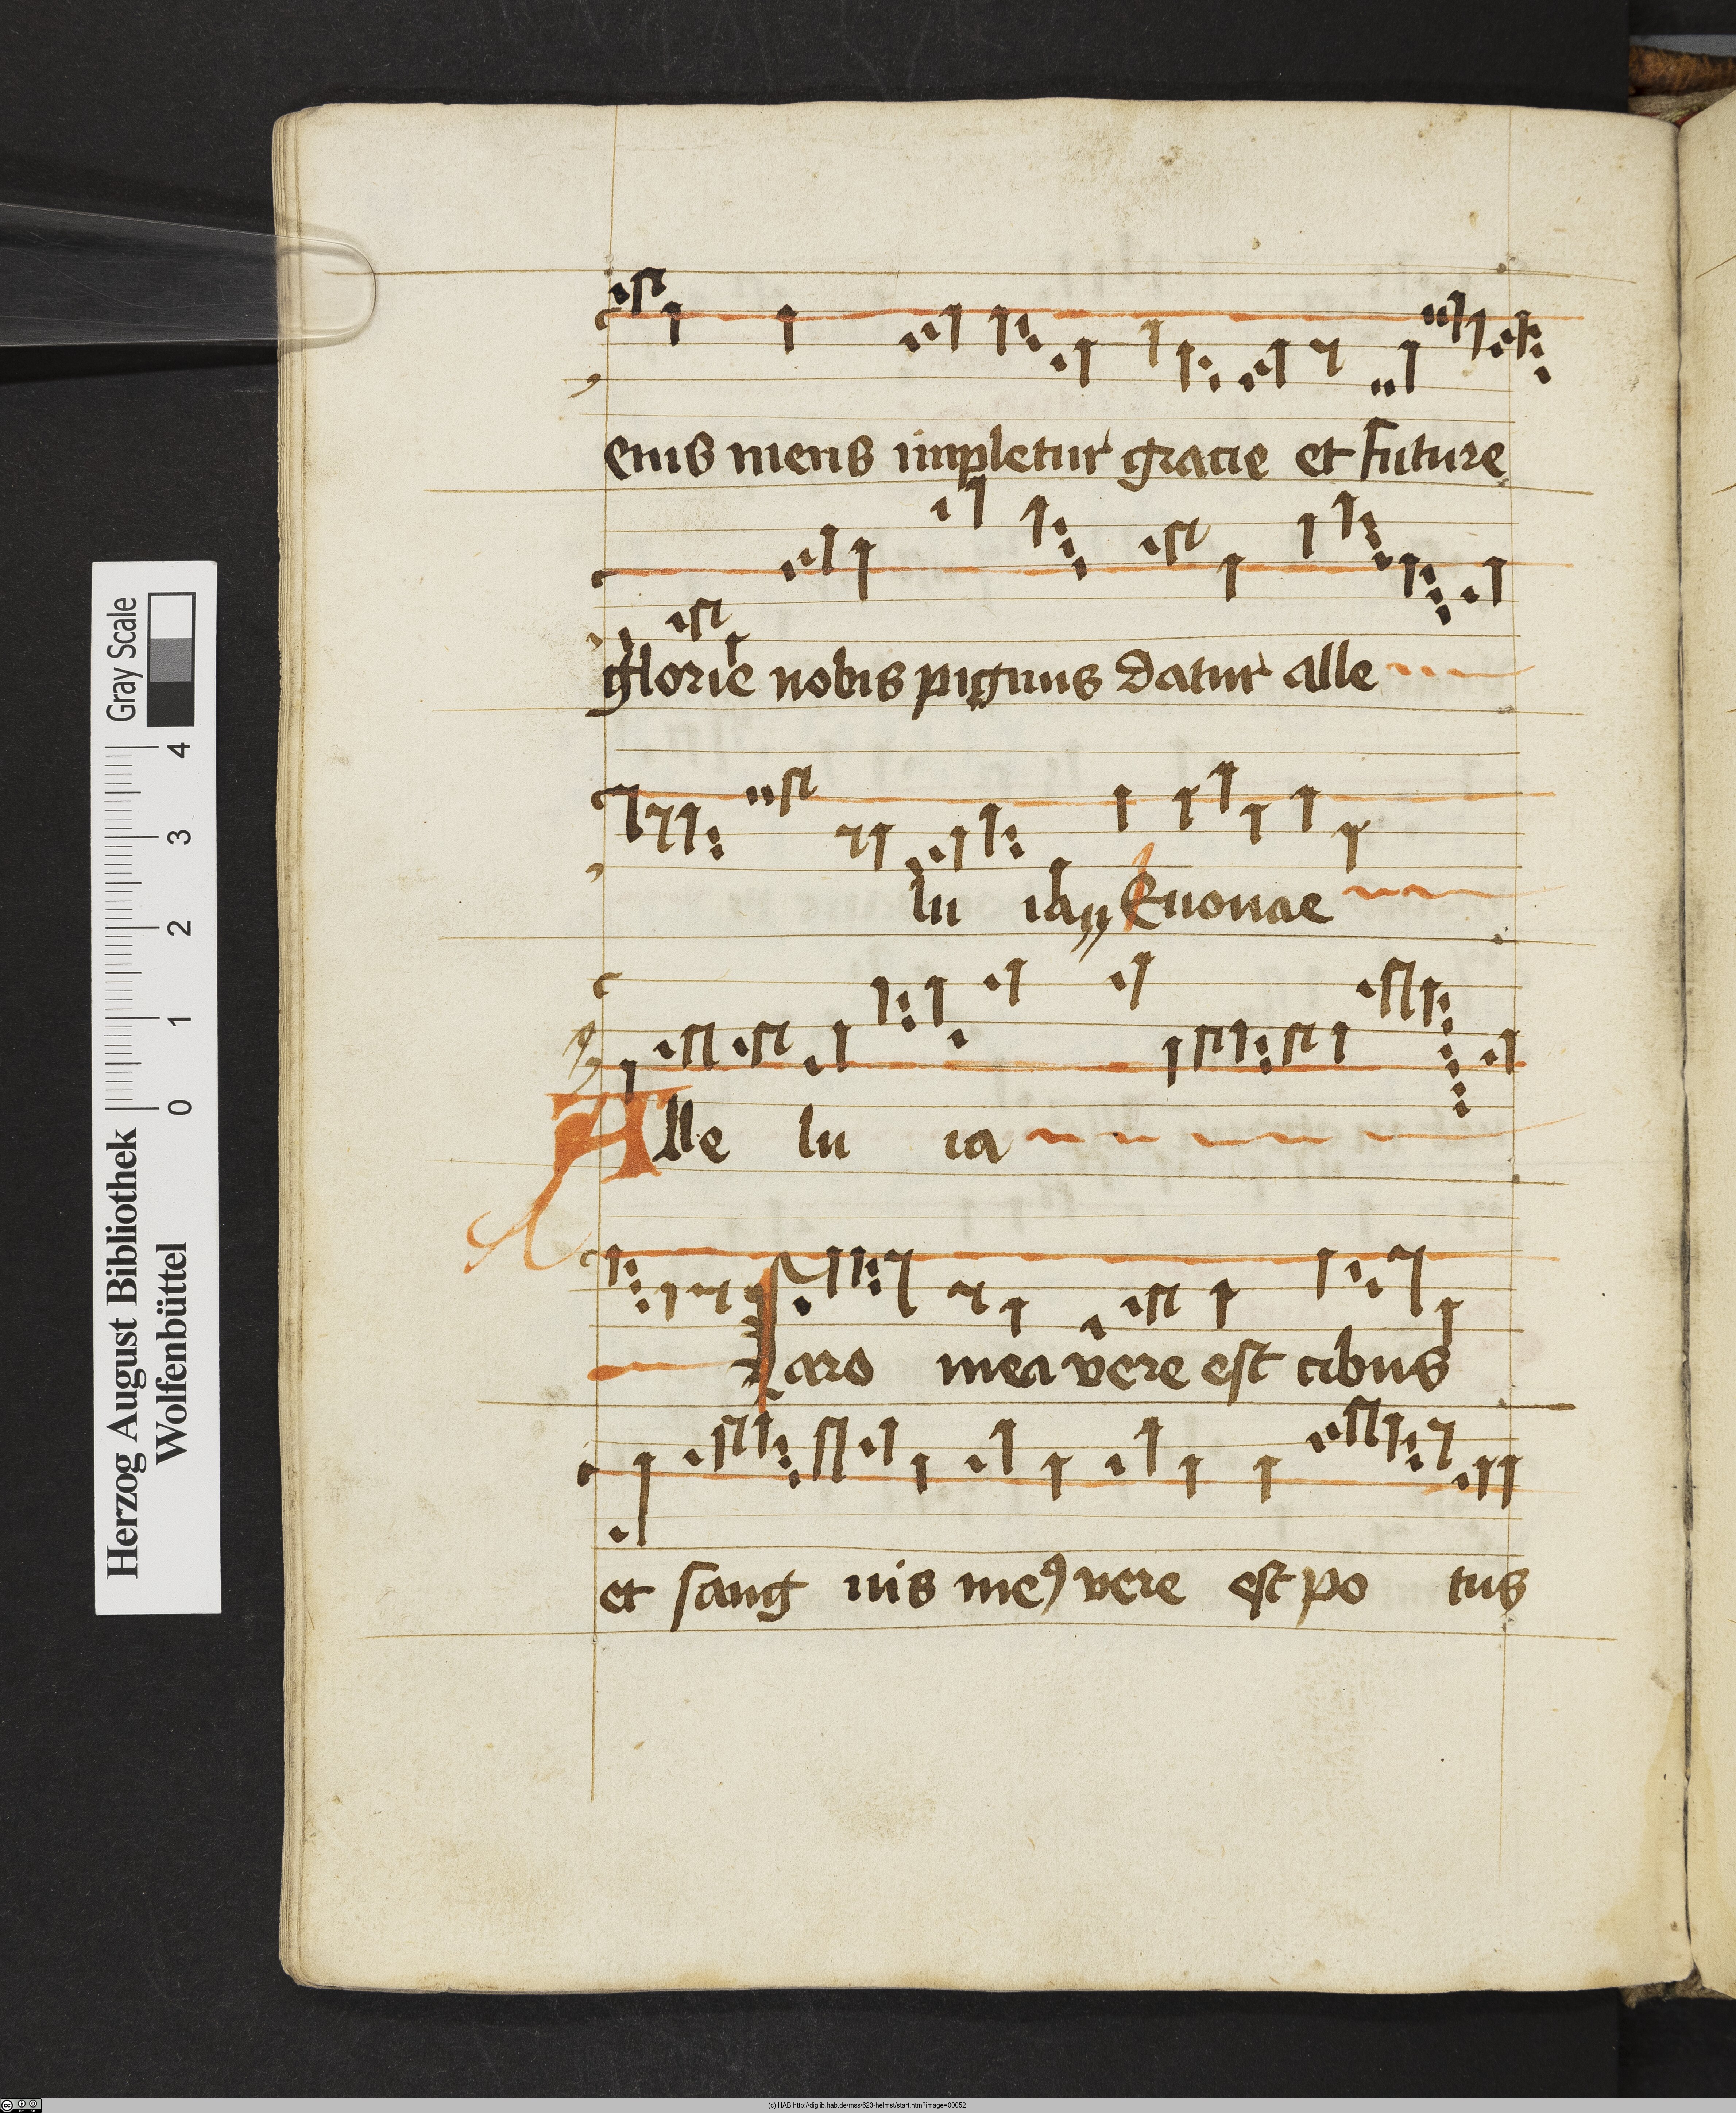 eius mens impletur gracie et future
glorie nobis pignus datur alle
lu ia Euouae
Alle lu ia
Caro mea vere est cibus
et sang uis meꝰ vere est po tus
Herzog August Bibliothek
Wolfenbüttel
0 1 2 3 4
Gray Scale
(c) HAB http://diglib.hab.de/mss/623-helmst/start.htm?image=00052